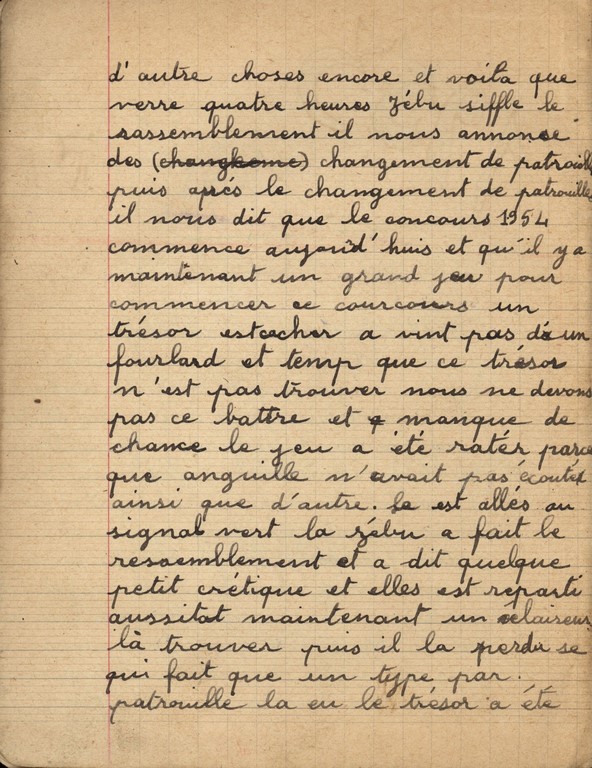 d'autre choses encore et voila que
verre quatre heures Zébu siffle le
rassemblement il nous annonse
des (changkeme) changement de patrouille
puis aprés le changement de patrouille
il nous dit que le concours 1954
commence aujourd'huis et qu'il y a
maintenant un grand jeu pour
commencer ce courcours un
trésor estcecher a vint pas d'un
fourlard et temp que ce trésor
n'est pas trouver nous ne devons
pas ce battre et manque de
chance le jeu a été ratér parce
que anguille n'avait pas écoutéx
ainsi que d'autre. Se est allés au
signal vert la zébu a fait le
ressemblement et a dit quelque
petit crétique et elles est reparti
aussitat maintenant un éclaireur
là trouver puis il la perdu se
qui fait que un type par.
patrouille la eu le trésor a été